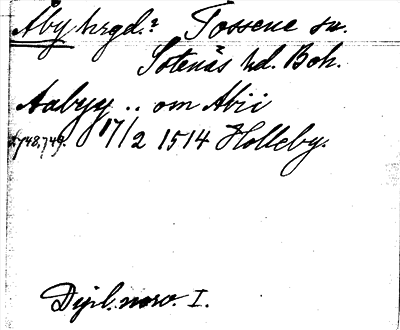 Åby hrgd.? Tossene sn.
Sotenäs hd. Boh.
Aabyy .. om Abii
s. 748, 749. 17/2 1514 Holleby.
Dipl. norv. I.